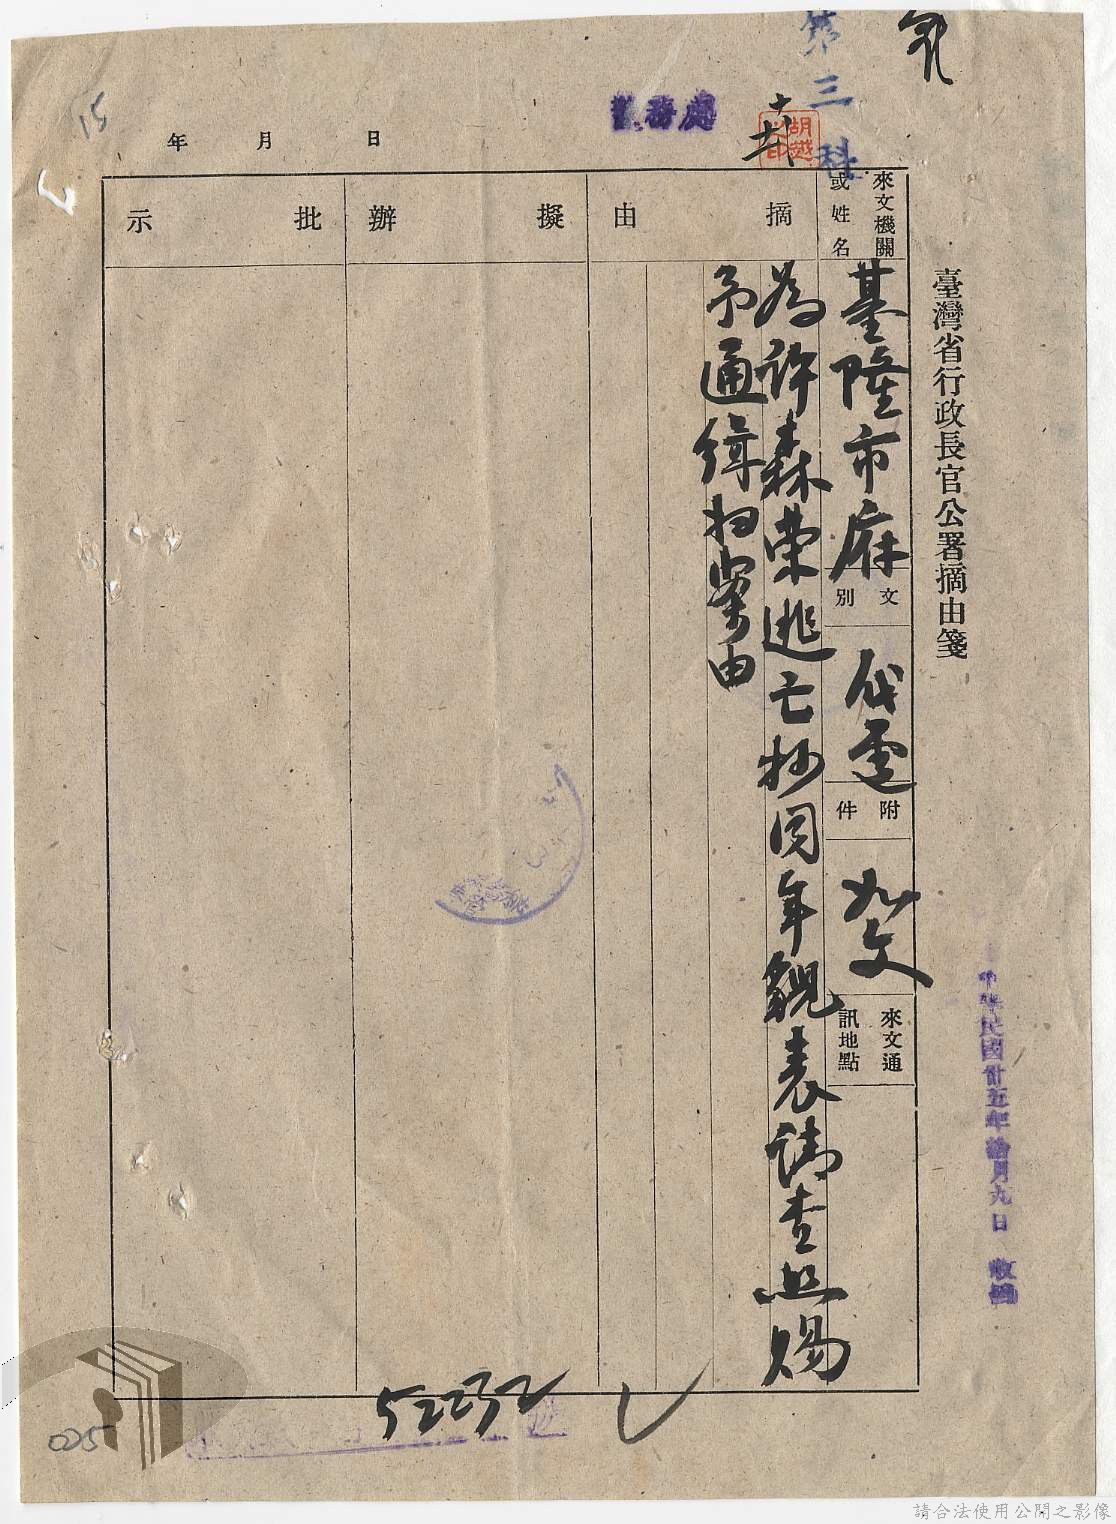 臺灣省行政長官公署摘由箋
中華民國卅五年拾月九日 收
來文機關
或姓名
基隆市府
文
別
代電
附
件
如文
來文通
訊地點
摘由
為許森榮逃亡抄同年貌表請查照賜
予通緝扫案由
擬辦
批示
年 月 日
第三科
警務處
胡越之印
15
52232
025
請合法使用公開之影像